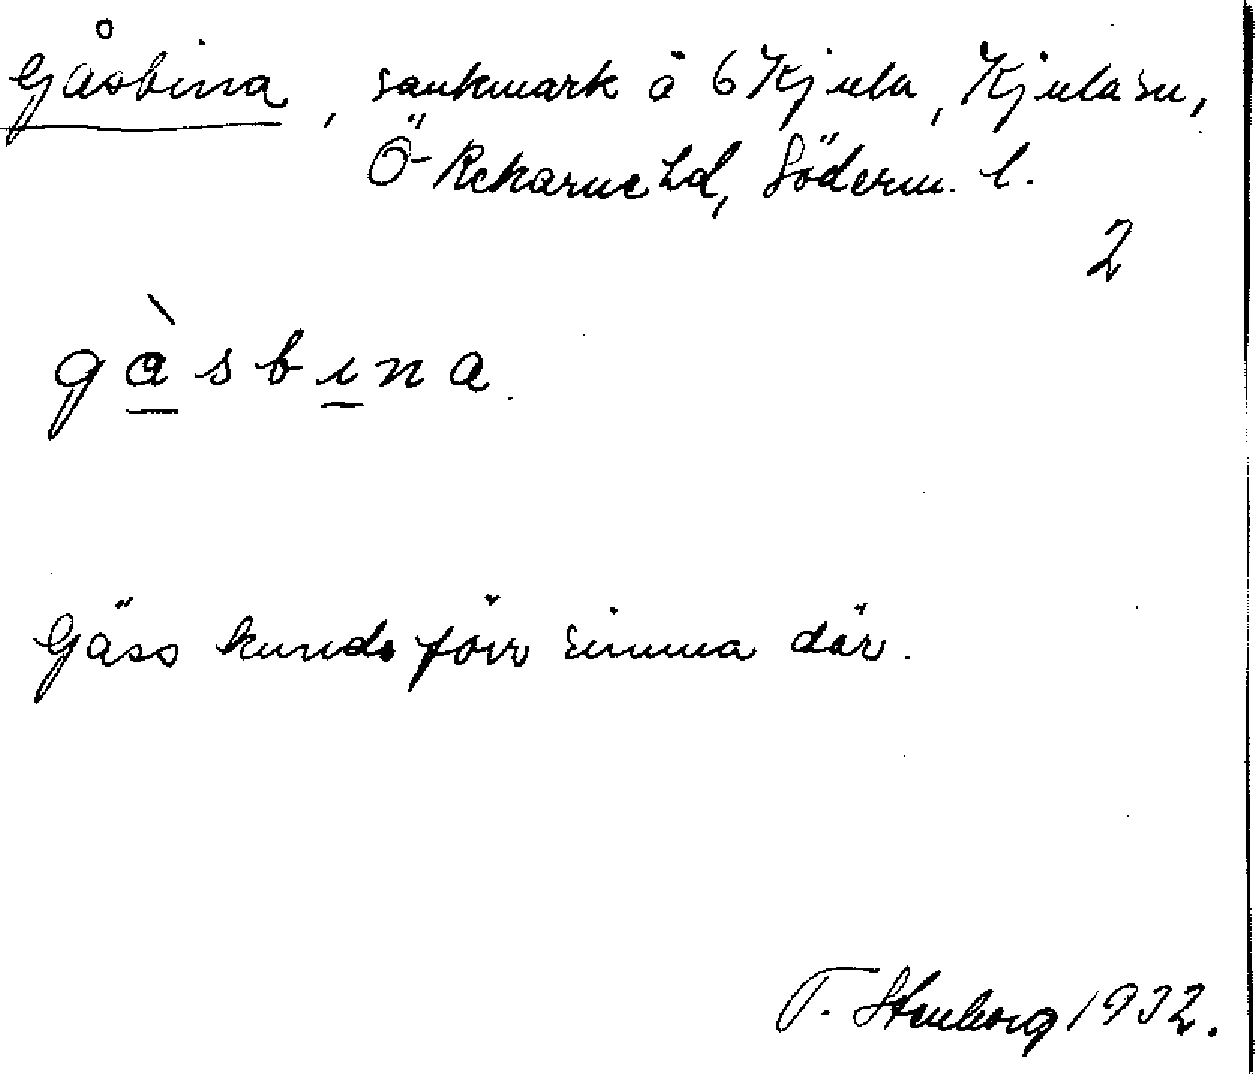 Gåsbina, sankmark å 6 Kjula, Kjula sn,
Ö Rekarne hd, Söderm. l.
2
gåsbina
Gäss kunde förr simma där.
T. Stenborg 1932.